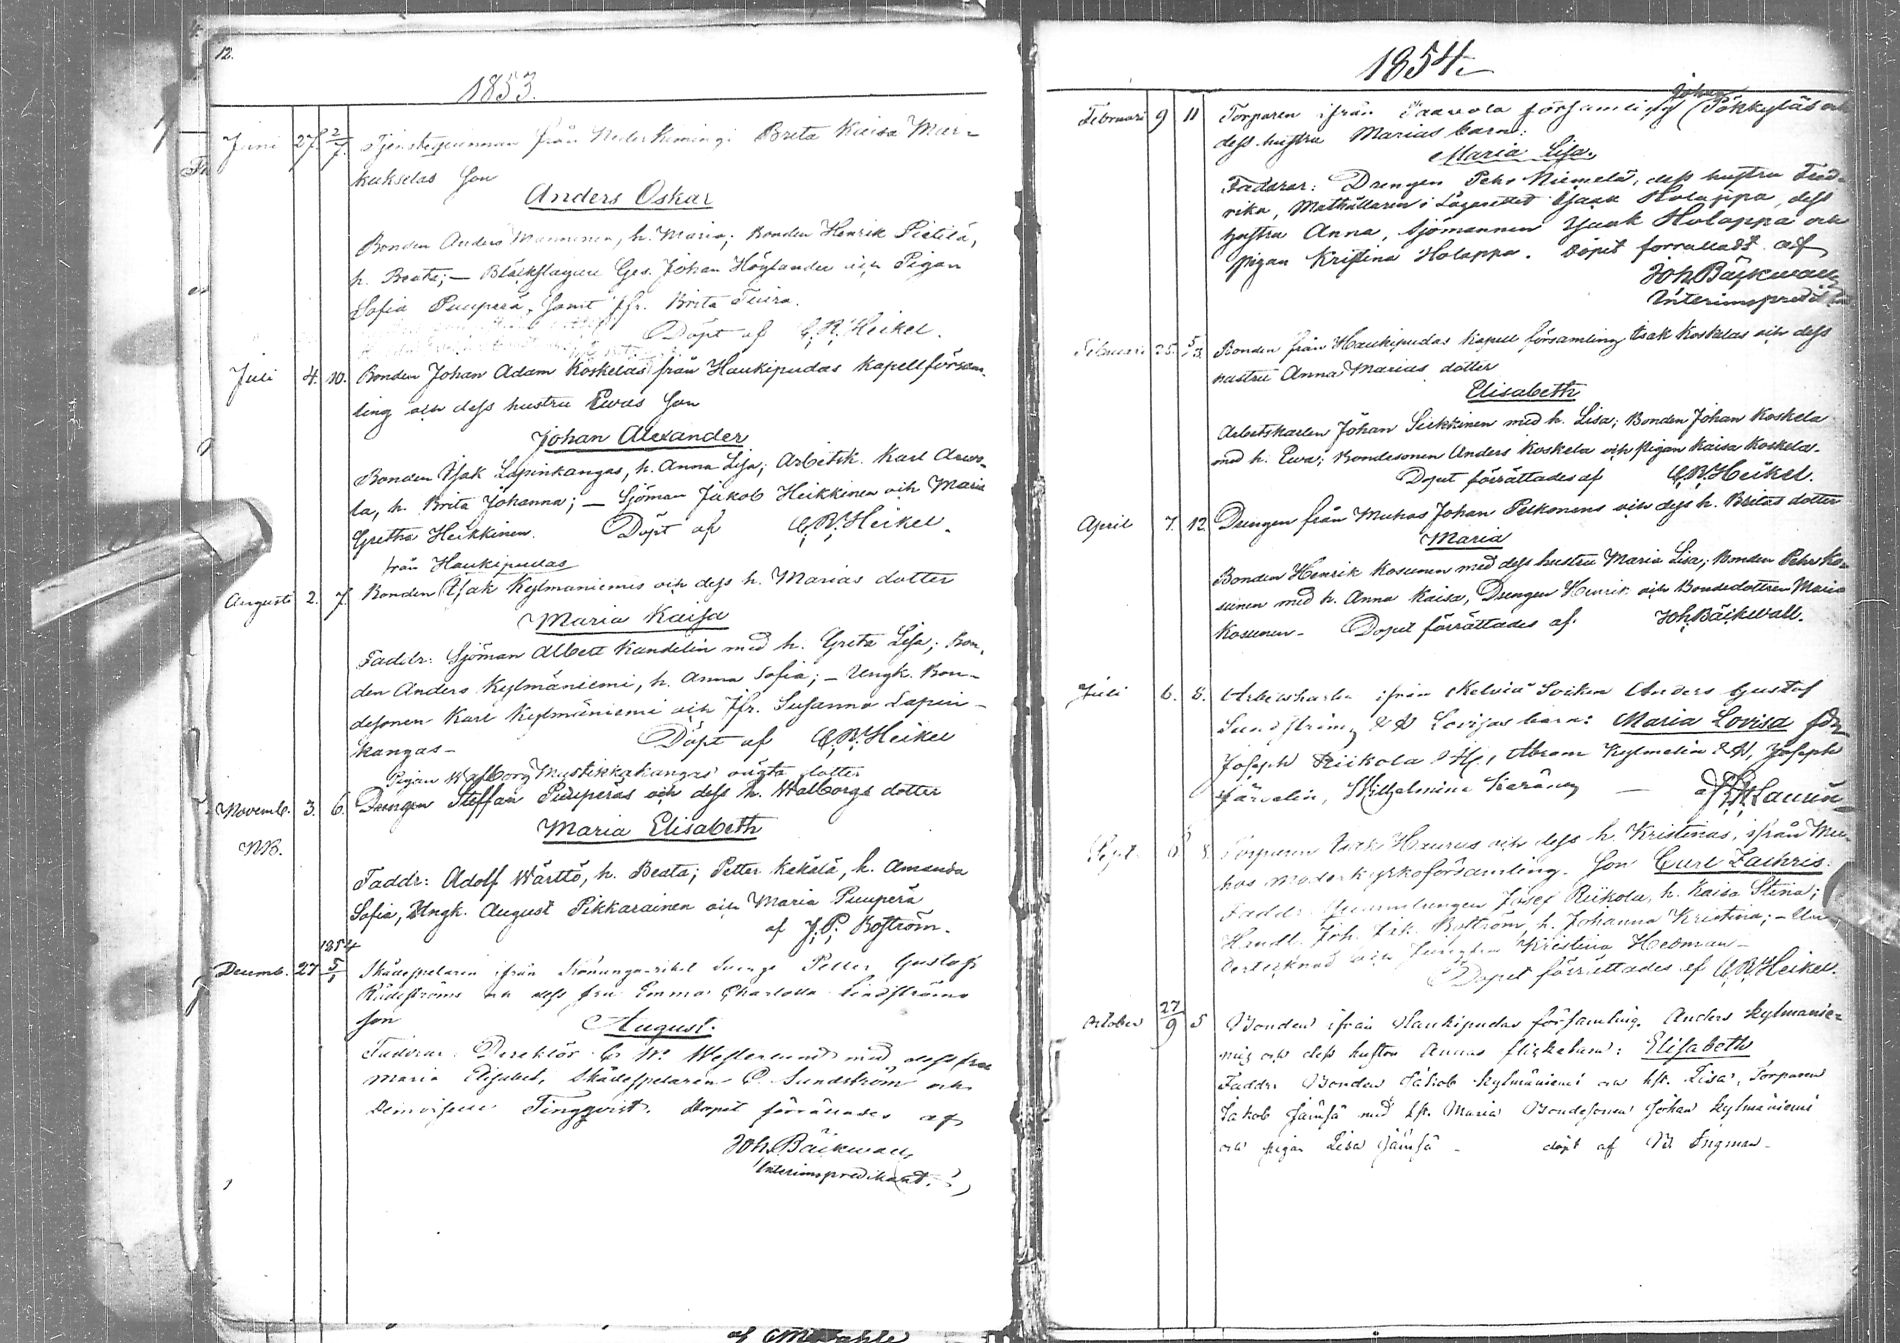 12.
1853.
Juni 27. 2/7. Tjensteqvinnan från Nederkimingi Brita Kaisa Mur-
kukselas son
Anders Oskar
Bonden Anders Manninen, h. Maria; Bonden Henrik Pietilä,
h. Beata; — Bläckslagare Ges. Johan Höglander och Pigan
Sofia Puuperä, samt jfr. Brita Tuira.
Döpt af C.R. Heikel.
Juli 4. 10. Bonden Johan Adam Koskelas från Haukipudas kapellförsam-
ling och dess hustru Ewas son
Johan Alexander
Bonden Isak Lapinkangas, h. Anna Lisa; Arbetsk. Karl
la, h. Brita Johanna; — Sjöman Jakob Heikkinen och Maria
Gretha Heikkinen. Döpt af C.R. Heikel.
från Haukipudas
Augusti 2. 7. Bonden Isak Kylmäniemis och dess h. Marias dotter
Maria Kaisa
Faddr: Sjöman Albert Kandelin med h. Greta Lisa; Bon-
den Anders Kylmäniemi, h. Anna Sofia; — Ungk. Bon-
desonen Karl Kylmäniemi och Jfr. Susanna Lapin-
kangas — Döpt af C.R. Heikel
Pigan Walborg Mustikkakangas oägta dotter
Novemb. 3. 6. Drengen Steffan Puuperäs och dess h. Walborgs dotter
NB. Maria Elisabeth
Faddr: Adolf Wärttö, h. Beata; Petter Kekälä, h. Amanda
Sofia, Ungk. August Pikkarainen och Maria Puuperä
af J.P. Boström.
1854
Decemb. 27 5/1 Skådespelaren ifrån Konungariket Sverge Petter Gustaf
och dess fru Emma Charlotta Lindströms
son August.
Faddrar: Direktör C. W. Westerlund med dess fru
Maria Elisabet, Skådespelaren C. Sundström och
Demoiselle Tingqvist. Dopet förrättades af
Joh. Bäckwall,
Interimspredikant.
1854.
Februari 9 11 Torparen ifrån Paavola församling Johan Pökkyläs och
dess hustru Marias barn:
Maria Lisa.
Faddrar: Drengen Pehr Niemelä, dess hustru Fred-
rika, Mathållaren i Lägerittet Isaak Holappa, dess
hustru Anna, Sjömannen Isaak Holappa och
pigan Kristina Holappa. Dopet förrättadt af
Joh. Bäckwall
Interimspredikant
Februari 25. 5/3. Bonden från Haukipudas Kapell församling Isak Koskelas och dess
hustru Anna Marias dotter
Elisabeth
Arbetskarlen Johan Sirkkinen med h. Lisa; Bonden Johan Koskela
med h. Ewa; Bondesonen Anders Koskela och Pigan Kaisa Koskela.
Dopet förrättades af C.R. Heikel.
April 7. 12. Drengen från Muhos Johan Pelkonens och dess h. Britas dotter
Maria
Bonden Henrik Kosunen med dess hustru Maria Lisa; Bonden Pehr Ko-
sunen med h. Anna Kaisa, Drengen Henrik och Bondedottren Maria
Kosunen. Dopet förrättades af Joh. Bäckwall.
Juli 6. 8. Arbetskarlen ifrån Kelviå Socken Anders Gustaf
Sundström, Lovisas barn: Maria Lovisa fdr
Joseph Riikola Abram Kylmelin Joseph
Järvelin, Wilhelmina Keränen — af Laurin
Sept. Torparen Isak Haurus och dess h. Kristinas, ifrån Mu-
hos moderkyrkoförsamling. Son Curl Zachris.
Faddr. Josef Riikola, h. Kaisa Stina;
Handl. Joh. Erk. Boström, h. Johanna Kristina; —
och Jungfru Kristina Hedman —
Dopet förrättades af C.R. Heikel.
October 27/9 5 Bonden ifrån Haukipudas församling. Anders Kylmänie-
mis och dess hustru Annas flickebarn: Elisabeth
Faddr. Bonden Jakob Kylmäniemi och hst. Lisa, Torparen
Jakob Jämsä med hst. Maria Bondesonen Johan Kylmäniemi
och pigan Lisa Jämsä — döpt af Ingman —